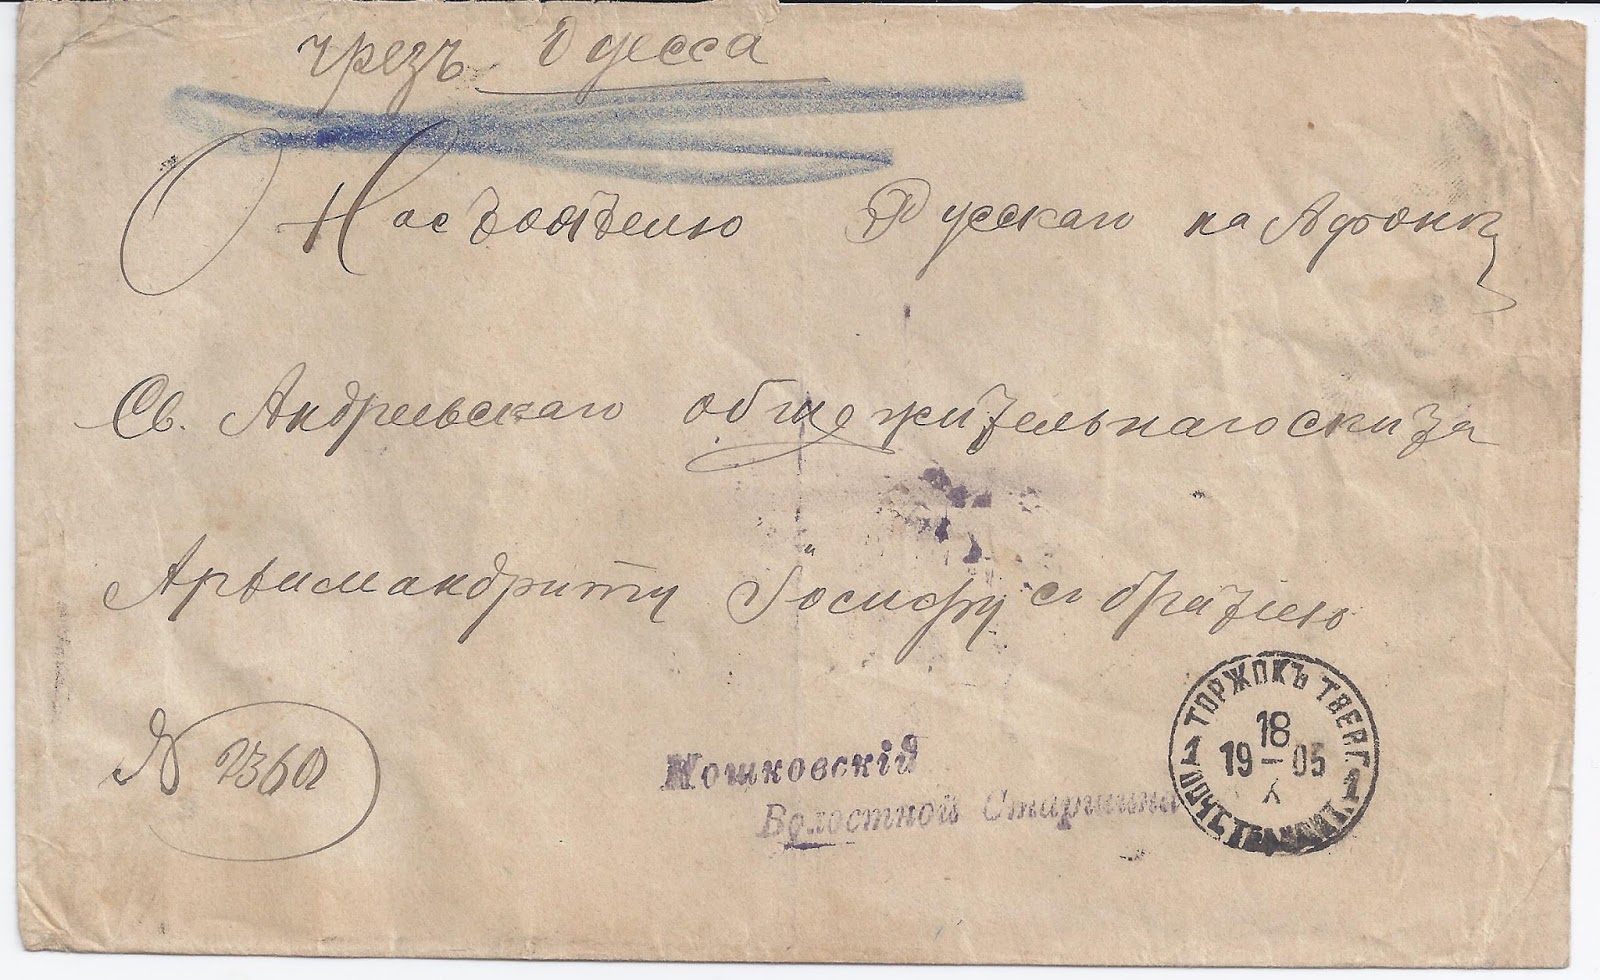 чрезъ Одесса
Настоятелю Русскаго на Афонѣ
Св. Андреевскаго общежительнаго скита
Архимандриту Іосифу съ братіею
№ 2360
Кошковскій
Волостной Старшина
ТОРЖОКЪ ТВЕР. Г.
18
19 - 05
X
1 ПОЧТ. ТЕЛ. КОНТ. 1